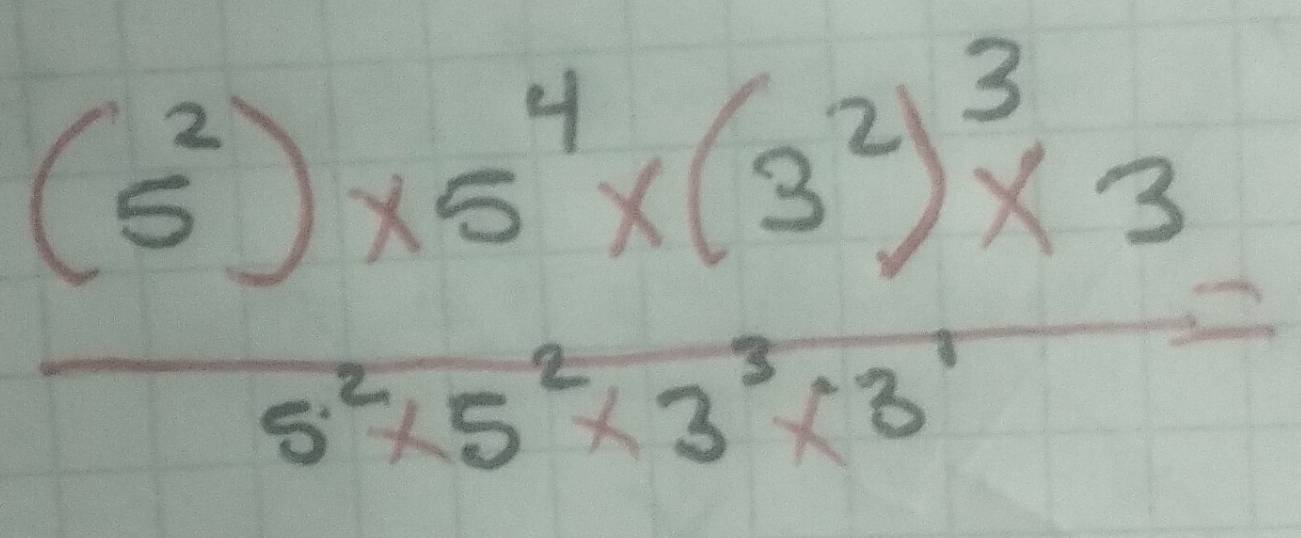 (5²) × 5⁴ × (3²)³ × 3 =
5² × 5² × 3³ × 3¹